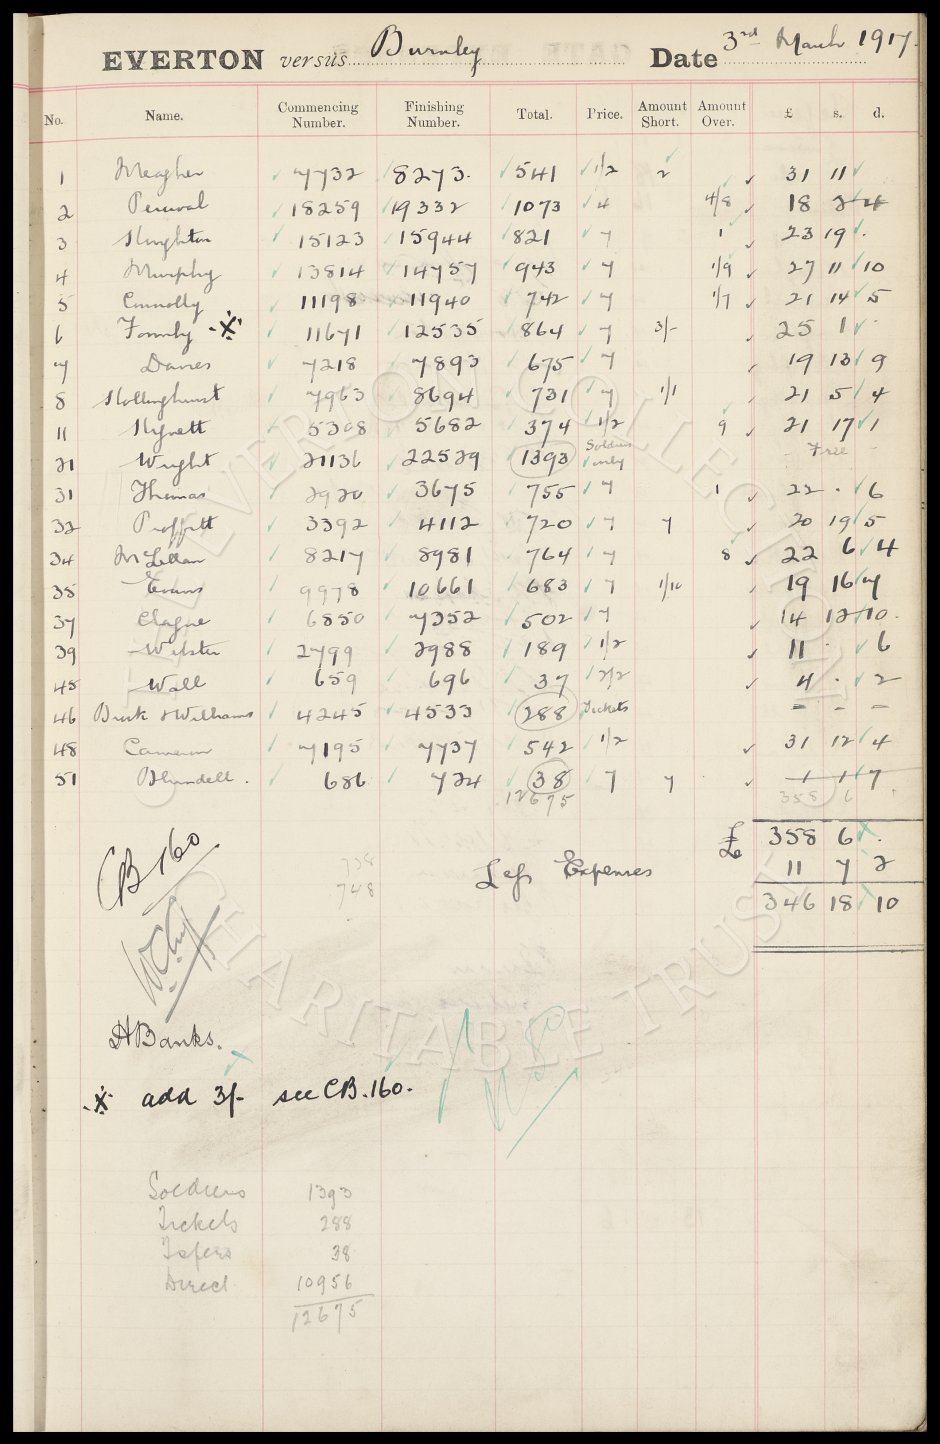 EVERTON versus Burnley Date 3rd March 1917.
No. Name. Commencing Number. Finishing Number. Total. Price. Amount Short. Amount Over. £ s. d.
1 Meagher 7732 8273. 541 1/2 2 31 11
2 Percival 18259 19332 1073 4 4/8 18 2 4
3 Hughton 15123 15944 821 7 1 23 19 .
4 Murphy 13814 14757 943 7 1/9 27 11 10
5 Connolly 11198 11940 742 7 1/7 21 14 5
6 Formby ※ 11671 12535 864 7 3/- 25 1
7 Davies 7218 7893 675 7 19 13 9
8 Hollinghurst 7963 8694 731 7 1/1 21 5 4
11 Hignett 5308 5682 374 1/2 9 21 17 1
21 Wright 21136 22529 1393 Soldiers only Free
31 Thomas 2920 3675 755 7 1 22 . 6
32 Proffitt 3392 4112 720 7 7 20 19 5
34 McLellan 8217 8981 764 7 8 22 6 4
35 Evans 9978 10661 683 7 1/10 19 16 7
37 Clague 6850 7352 502 7 14 12 10.
39 Webster 2799 2988 189 1/2 11 . 6
45 Wall 659 696 37 2/2 4 . 2
46 Williams 4245 4533 288 Tickets - - -
48 Cameron 7195 7737 542 1/2 31 12 4
51 Blundell. 686 724 38 7 7 1 1 7
12675 358 6
£ 358 6 .
CB 160
738
Less Expenses 11 7 2
748
346 18 10
H Banks.
※ add 3/- see CB.160.
Soldiers 1393
Tickets 288
38
Direct 10956
12675
EVERTON COLLECTION
CHARITABLE TRUST